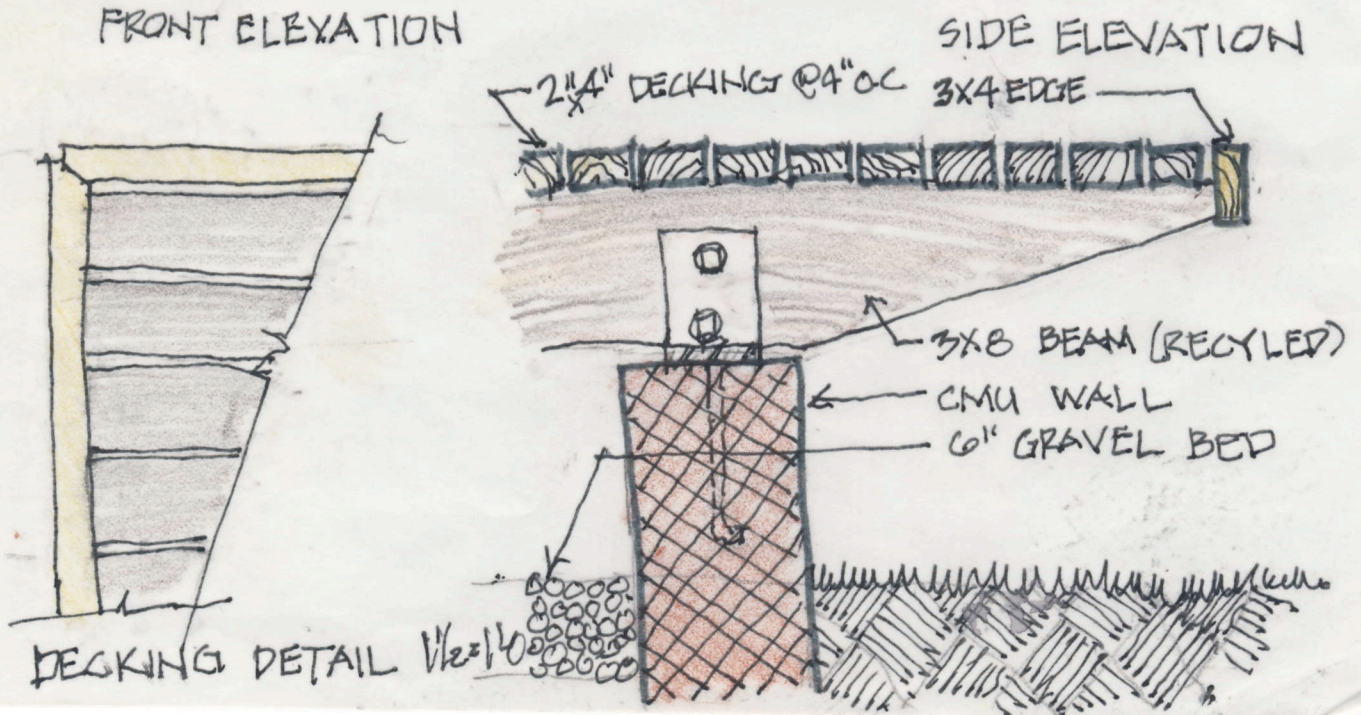 FRONT ELEVATION
SIDE ELEVATION
2"x4" DECKING @4" OC
3X4 EDGE
3X8 BEAM (RECYLED)
CMU WALL
6" GRAVEL BED
DECKING DETAIL 1½=1'0